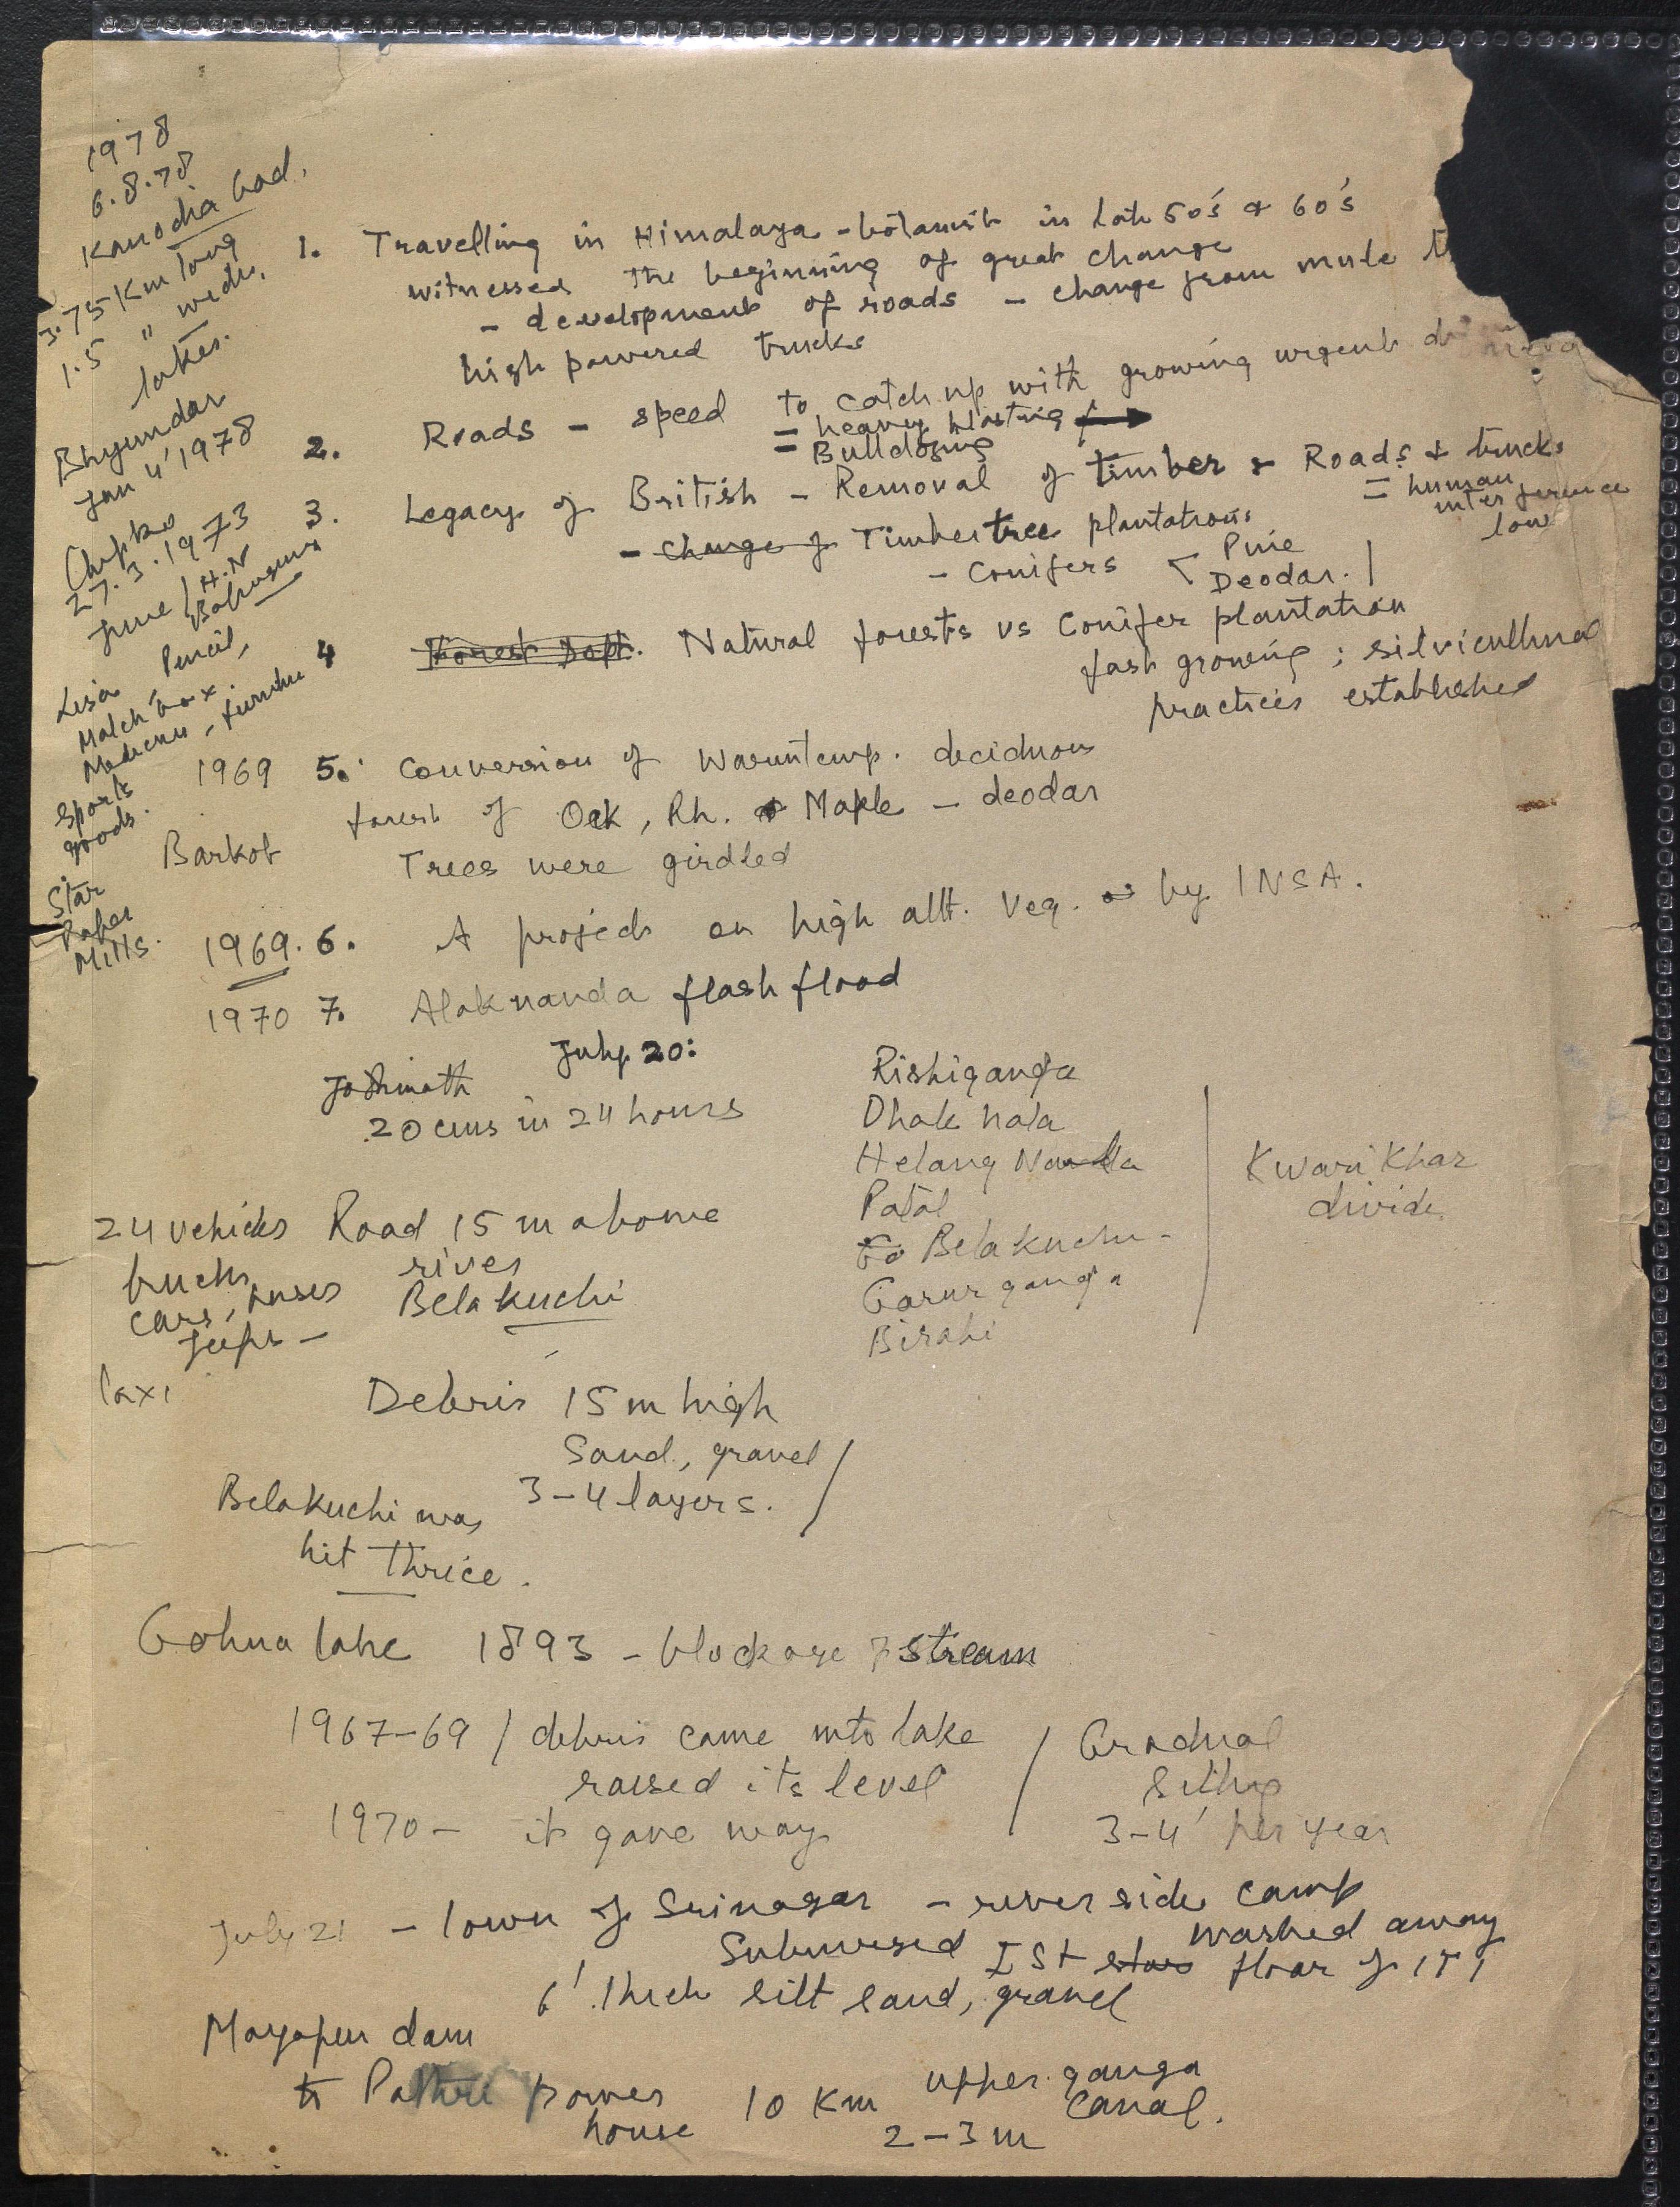 1978
6.8.78
Kanodia Gad.
3.75 Km long
1.5 " wide.
lakes.
Bhyundar
Jan 4' 1978
Chipko
27.3.1973
June / H.N
Bahuguna
Lisa Pencil,
Match box.
Medicine - furniture
Sports
goods.
Star
Paper
Mills.
1. Travelling in Himalaya - botanist in late 50's & 60's
witnessed the beginning of great change
- development of roads - change from mule
high powered trucks
2. Roads - speed to catch up with growing urgent
= heavy blasting
= Bulldozing
3. Legacy of British - Removal of timber & Roads & trucks
= human
interference
low
- Change of Timber tree plantations
- Conifers < Pine
Deodar.
4 Forest Deptt. Natural forests vs Conifer plantation
fast growing ; silvicultural
practices established
1969 5. Conversion of Warm temp. deciduous
forest of Oak, Rh. & Maple - deodar
Barkot Trees were girdled
1969. 6. A project on high alt. veg. by INSA.
1970 7. Alaknanda flash flood
July 20:
Joshimath
20 cms in 24 hours
Rishiganga
Dhak nala
Helang Nala
Patal
to Belakuchi -
Garur ganga
Birahi
Kwari Khar
divide
24 vehicles Road 15 m above
trucks river
cars, buses Belakuchi
Jeeps -
Taxi
Debris 15 m high
Sand, gravel /
3-4 layers.
Belakuchi was
hit thrice.
Gohna lake 1893 - blockage of stream
1967-69 / debris came into lake
raised its level
1970 - it gave way
/ Gradual
silting
3-4' per year
July 21 - town of Srinagar - river side camp
washed away
Submersed Ist floor of ITI
6' thick silt sand, gravel
Mayapur dam
to Pathri power
house 10 Km upper ganga
canal.
2-3 m